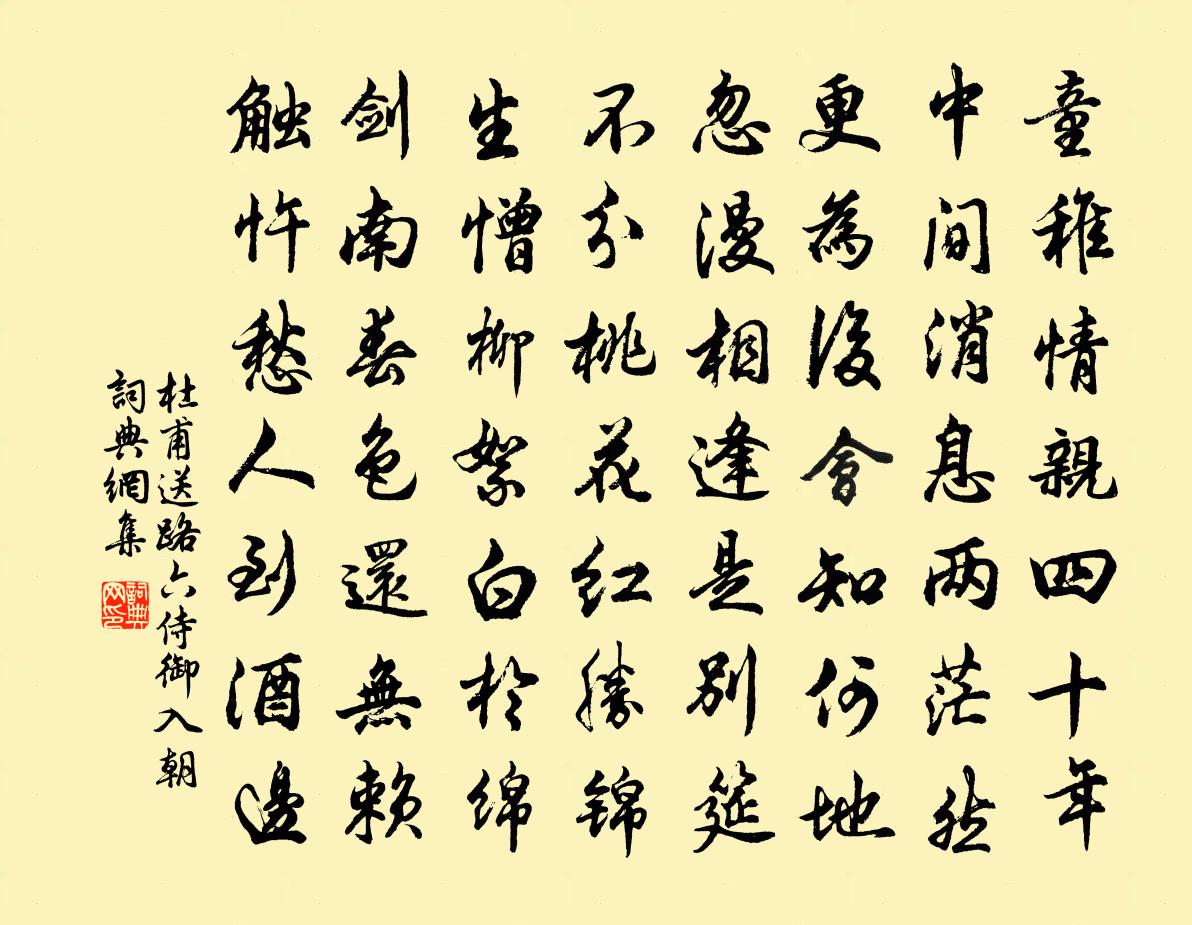 童稚情親四十年
中間消息兩茫然
更為後會知何地
忽漫相逢是別筵
不分桃花紅勝錦
生憎柳絮白於綿
劍南春色還無賴
觸忤愁人到酒邊
杜甫送路六侍御入朝
詞典網集
詞典网印